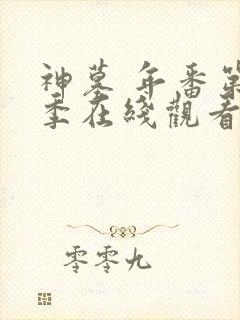 神墓 年番第
季在綫觀看
零零九